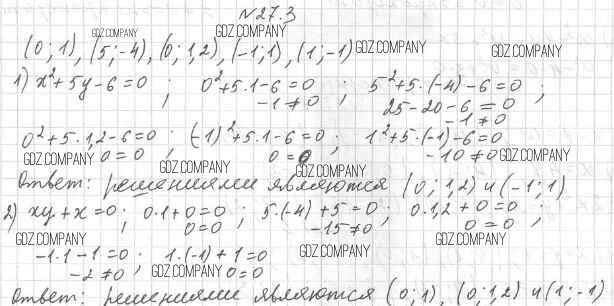 №27.3
GDZ.COMPANY GDZ.COMPANY
(0; 1), (5; -4), (0; 1,2), (-1; 1), (1; -1) GDZ.COMPANY GDZ.COMPANY
1) x²+5y-6=0 ; 0²+5·1-6=0 ; 5²+5·(-4)-6=0 ;
-1≠0 25-20-6=0
-1≠0
0²+5·1,2-6=0 ; (-1)²+5·1-6=0 ; 1²+5·(-1)-6=0
GDZ.COMPANY 0=0 ; GDZ.COMPANY 0=0 GDZ.COMPANY -10≠0 GDZ.COMPANY
Ответ: решениями являются (0; 1,2) и (-1; 1)
2) xy+x=0 ; 0·1+0=0 ; 5·(-4)+5=0 ; 0·1,2+0=0 ;
0=0 -15≠0 0=0
GDZ.COMPANY GDZ.COMPANY GDZ.COMPANY
-1·1-1=0 ; 1·(-1)+1=0
-2≠0 ; GDZ.COMPANY 0=0
Ответ: решениями являются (0; 1), (0; 1,2) и (1; -1)